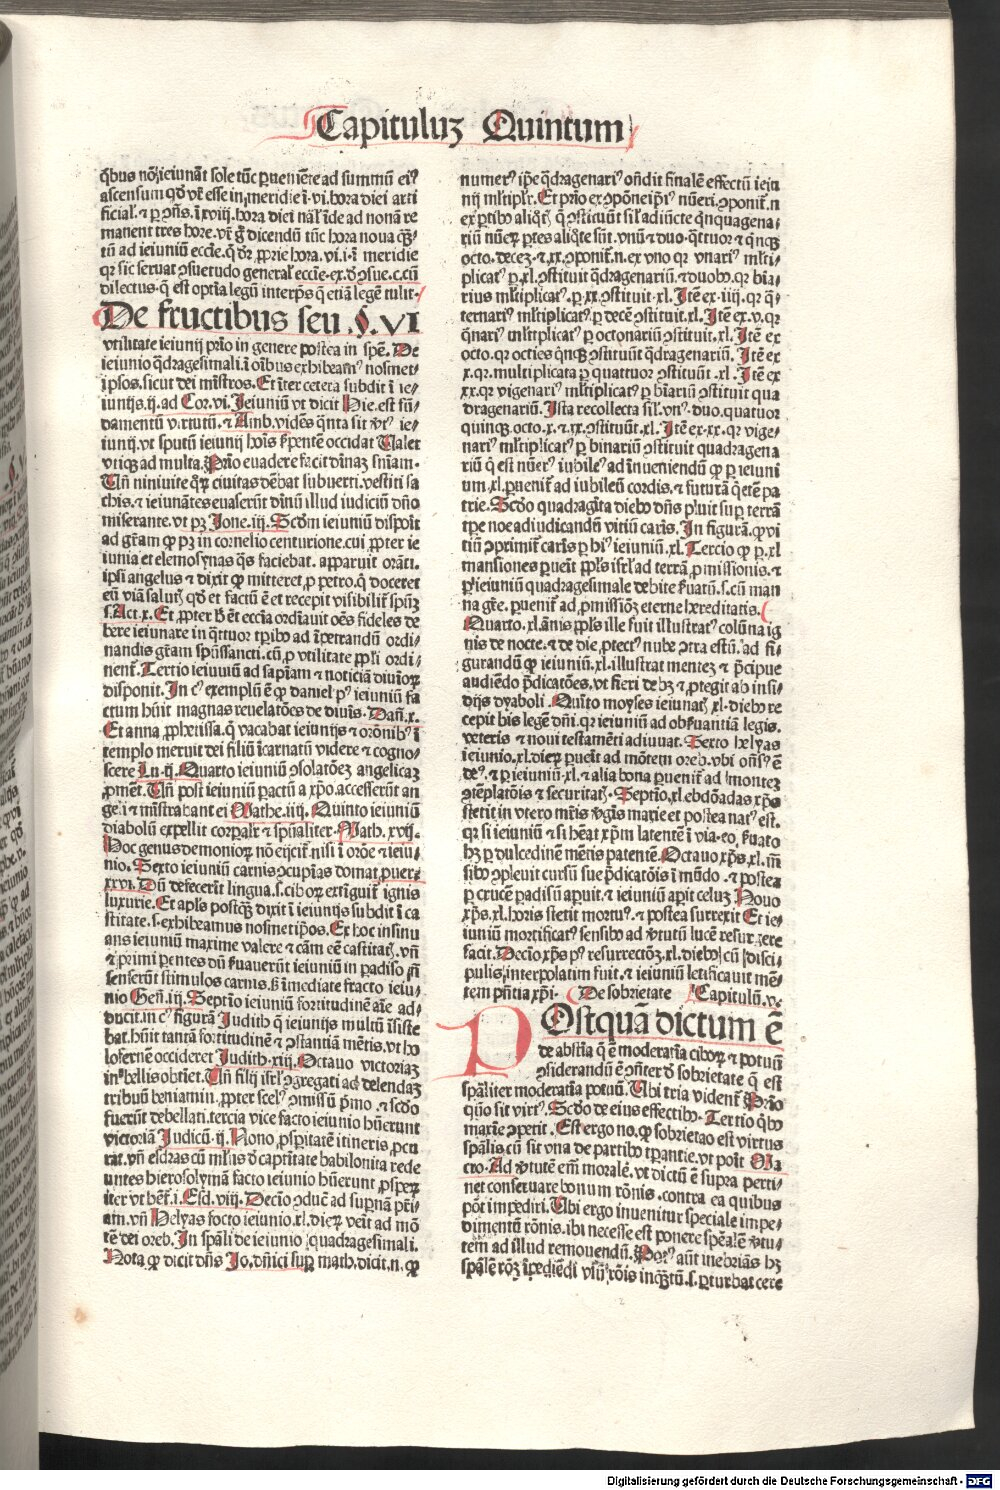 Capituluz Quintum
q̄bus nō ieiunāt sole tūc ꝑueniēte ad summū eiꝰ
ascensum qd̓ vt̓ esse in meridie ī vi. hora diei arti
ficial̓. ⁊ ꝑ ꝯn̄s. ī xviij. hora diei nāl̓
manent tres hore. vn̄ g̓ dicendū tūc hora noua
tū ad ieiuniū eccl̓ie. q̄ dr̄ ꝓprie hora. vi. i. ī meridie
qr sic seruat ꝯsuetudo general̓ eccl̓ie
dilectus. q̄ est optīa legū interp̄s q̄ etiā legē tulit.
De fructibus seu .§. VI
vtilitate ieiunij prīo in genere postea in spē. De
ieiunio q̄dragesimali. ī oībus exhibeamꝰ nosmet
ipsos. sicut dei mīstros. Et īter cetera subdit ī ie⸗
iunijs. ij. ad Cor. vi. Ieiuniū vt dicit Hie. est fū⸗
damentū virtutū. ⁊ Amb. vidēs q̄nta sit vt̓ꝰ ie⸗
iunij. vt sputū ieiunij hoīs
vtiqꝫ ad multa. Prīo euadere facit diīnaꝫ sniam.
Cū niniuite qꝝ ciuitas dēbat subuerti. vestiti sa
chis. ⁊ ieiunātes euaserūt diīnū illud iudiciū dn̄o
miserante. vt pꝫ Ione. iij. Scd̓m ieiuniū dispoīt
ad gr̄am qꝫ pꝫ in cornelio centurione. cui ꝓpter ie
iunia et elemosynas q̄s faciebat. apparuit orāti.
ipsi angelus ⁊ dixit qꝫ mitteret ꝓ petro. q̄ doceret
eū viā salutꝭ qd̓ et factū ē et recepit visibilit̓ spūꝫ
s. Act. x. Et ꝓpter
bere ieiunare in q̄ttuor tꝑibꝰ ad īpetrandū ordi⸗
nandis gr̄am spūssancti. cū ꝓ vtilitate ppl̓i ordi⸗
nent̄. Tertio ieiuniū ad sapīam ⁊ noticiā diuīoꝝ
disponit. In cꝰ exemplū ē qꝫ daniel pꝰ ieiuniū fa
ctum hūit magnas reuelatōes de diuīs. Dan̄. x.
Et anna ꝓphetissa. q̄ vacabat ieiunijs ⁊ orōnibꝰ ī
templo meruit dei filiū īcarnatū videre ⁊ cogno⸗
scere Lu. ij. Quarto ieiuniū ꝯsolatōeꝫ angelicaꝫ
ꝓmet̄.
geli ⁊ mīstrabant ei Mathe. iiij. Quinto ieiuniū
diabolū expellit corꝑalr̄ ⁊ spūaliter. Math. xvij.
Hoc genus demonioꝝ nō eijcit̄ nisi ī orōe ⁊ ieiu⸗
nio. Sexto ieiuniū carnis ꝯcupīas domat. puer⸗
xxvi. Dū defecerīt lingua. s. ciboꝝ extīguit̄ ignis
luxurie. Et apl̓s postqꝫ dixit ī ieiunijs subdit ī ca
stitate. s. exhibeamus nosmetip̄os. Ex hoc insinu
ans ieiuniū maxime valere ⁊ cām eē castitatꝭ. vn̄
⁊ primi parentes dū
senserūt stimulos carnis. sꝫ īmediate fracto ieiu⸗
nio Gen̄. iij. Septīo ieiuniū fortitudinē aīe ad⸗
ducit. in cꝰ figurā Judith q̄ ieiunijs multū īsiste
bat. hūit tantā fortitudinē ⁊ ꝯstantiā mētis. vt ho
lofernē occideret Judith. xiij. Octauo victoriaꝫ
in bellis obtīet. Cū filij isrl̓ ꝯgregati ad delendaꝫ
tribuū beniamin. ꝓpter scelꝰ ꝯmissū p̄mo. ⁊ scd̓o
fuerūt debellati. tercia vice facto ieiunio hūerunt
victoriā Judicū. ij. Nono ꝓsperitatē itineris ꝓcu
rat. vn̄ esdras cū
untes hierosolymā facto ieiunio hūerunt ꝓsperū
iter vt het̄. i. Esd̓. viij. Decīo ꝯducit ad supnā pr̄i⸗
am. vn̄ Helyas facto ieiunio. xl. dieꝝ venit ad mō
tē dei oreb. In spāli de ieiunio quadragesimali.
Nota qꝫ dicit dn̄s Jo. dn̄ici suꝑ math. dicit. n. qꝫ
numerꝰ ip̄e q̄dragenariꝰ on̄dit finalē effectū ieiu
nij
ex ꝑtibꝰ aliqꝭ q̄ ꝯstituūt sil̓ adiūcte q̄nquagena⸗
riū nūeꝝ ꝑtes aliqte sūt. vnū ⁊ duo. q̄ttuor ⁊ q̄nqꝫ
octo. deceꝫ. ⁊ xx. ꝯponit̄. n. ex vno qr vnariꝰ ml̓ti⸗
plicatꝰ ꝑ. xl. ꝯstituit q̄dragenariū. ⁊ duobꝰ. qr bīa⸗
rius ml̓tiplicatꝰ. ꝑ xx. ꝯstituit. xl. Itē ex. iiij. qr q̄⸗
ternariꝰ ml̓tiplicatꝰ. ꝑ decē ꝯstituit. xl. Itē ex. v. qr
q̄nariꝰ ml̓tiplicatꝰ ꝑ octonariū ꝯstituit. xl. Itē ex
octo. qr octies q̄nqꝫ ꝯstituūt q̄dragenariū. Itē ex
x. qr. multiplicata ꝑ quattuor ꝯstituūt. xl. Itē ex
xx. qr vigenariꝰ ml̓tiplicatꝰ ꝑ bīariū ꝯstituit qua
dragenariū. Ista recollecta sil̓. vnꝰ. duo. quatuor
quinqꝫ. octo. x. ⁊ xx. ꝯstituūt. xl. Itē ex. xx. qr vige⸗
nariꝰ ml̓tiplicatꝰ ꝑ binariū ꝯstituit quadragena
riū q̄ est nūerꝰ iubileꝰ ad īnveniendū qꝫ ꝑ ieiuni
um. xl. ꝑuenit̄ ad iubileū cordis. ⁊ futurā q̄etē pa
trie. Scd̓o quadragīta diebꝰ dn̄s pluit suꝑ terrā
tp̄e noe ad iudicandū vitiū carīs. In figurā. qꝫ vi
tiū ꝯprimit̄ carīs ꝑ hꝰ ieiuniū. xl. Tercio qꝫ ꝑ. xl
mansiones ꝑueīt ppl̓s isrl̓ ad terrā ꝓmissionis. ⁊
ꝑ ieiuniū quadragesimale debite
na gr̄e. ꝑuenit̄ ad ꝓmissiōꝫ eterne hereditatis.
Quarto. xl. ānis ppl̓s ille fuit illustratꝰ colūna ig
nis de nocte. ⁊ de die. ꝓtectꝰ nube ꝯtra estū. ad fi⸗
gurandū qꝫ ieiuniū. xl. illustrat menteꝫ ⁊ p̄cipue
audiēdo p̄dicatōes. vt fieri debꝫ ⁊ ꝓtegit ab insi⸗
dijs dyaboli. Quīto moyses ieiunatꝭ. xl. diebꝰ re
cepit bis legē dn̄i. qr ieiuniū ad obẜuantiā legis.
veteris ⁊ noui testamēti adiuuat. Sexto helyas
ieiunio. xl. dieꝝ ꝑueīt ad mōtem oreb. vbi on̄sꝰ ē
deꝰ. ⁊ ꝑ ieiuniū. xl. ⁊ alia bona ꝑuenit̄ ad monteꝫ
ꝯtēplatōis ⁊ securitatꝭ. Septīo. xl. ebdōadas xp̄s
stetit in vtero mr̄is vḡis marie et postea natꝰ est.
qr si ieiuniū ⁊ si heāt xp̄m latentē ī via. eo ẜuato
hꝫ ꝑ dulcedinē mētis patentē. Octauo xp̄s. xl. m̄
sibꝰ ꝯpleuit cursū sue p̄dicatōis ī mūdo. ⁊ postea
ꝑ crucē padisū apuit. ⁊ ieiuniū aperit celuꝫ Nono
xp̄s. xl. horis stetit mortuꝰ. ⁊ postea surrexit Et ie⸗
iuniū mortificatꝰ sensibꝰ ad vtutū lucē resurgere
facit. Decīo xp̄s pꝰ resurrectōꝫ. xl. diebꝰ cū disci⸗
pulis. interpolatim fuit. ⁊ ieiuniū letificauit mē⸗
tem pn̄tia xp̄i. De sobrietate Capitulū. v.
POstquā dictum ē
de abstīa q̄ ē moderatīa ciboꝝ ⁊ potuū
ꝯsiderandū ē ꝯn̄ter de sobrietate q̄ est
spāliter moderatīa potuū. Ubi tria vident̄. Prīo
quō sit virtꝰ. Scd̓o de eius effectibꝰ. Tertio q̄bꝰ
maxīe ꝯpetit. Est ergo no. qꝫ sobrietas est virtus
spālis cū sit vna de partibꝰ tꝑantie. vt poīt Ma
cro. Ad vtutē em̄ moralē. vt dictū ē supra perti⸗
net conseruare bonum rōnis. contra ea quibus
pōt impediri. Ubi ergo inuenitur speciale impe⸗
dimentū rōnis. ibi necesse est ponere spēalē vtu⸗
tem ad illud remouendū. Potꝰ aūt inebriās hꝫ
spālē rōꝫ īpediēdi vsū rōis inqꝫtū. s. ꝑturbat cere
Digitalisierung gefördert durch die Deutsche Forschungsgemeinschaft - DFG